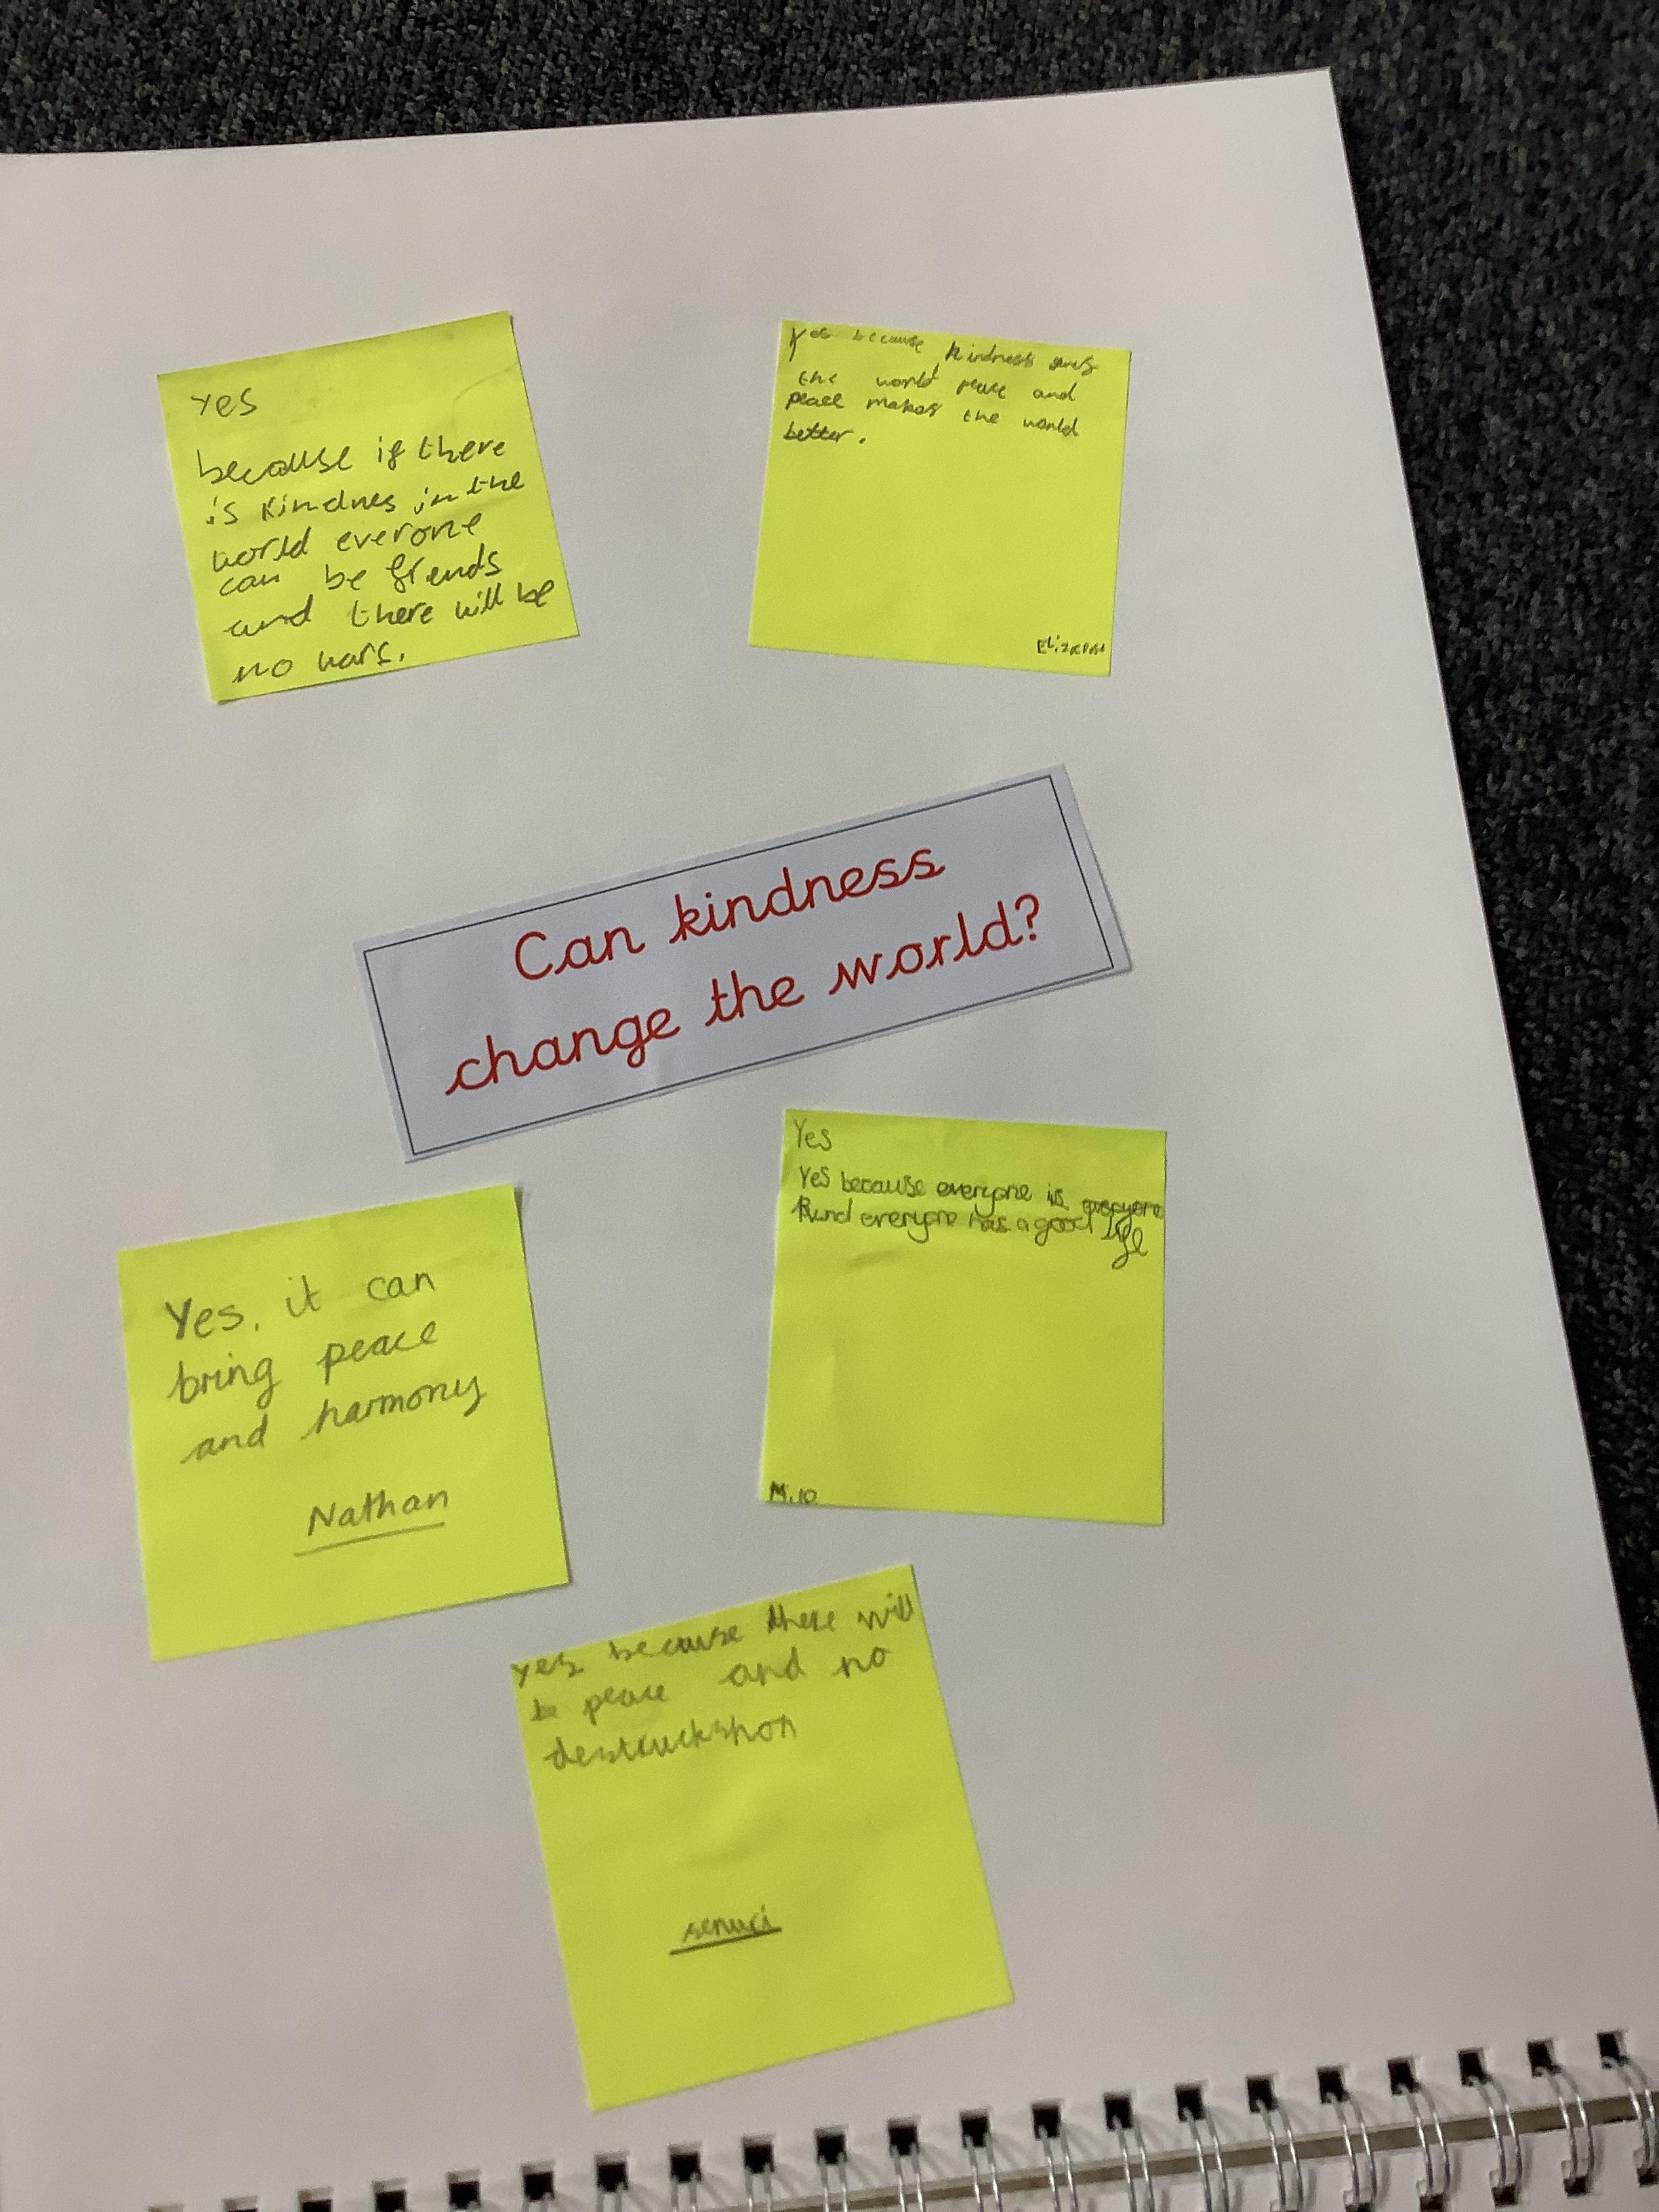 yes
because if there
is kindnes in the
world everone
can be friends
and there will be
no wars.
Yes because kindness gives
the world peace and
peace makes the world
better.
Can kindness
change the world?
Yes, it can
bring peace
and harmony
Nathan
Yes
Yes because everyone is everyone
kind everyone has a good life
Milo
yes because there will
b peace and no
destruckshon
senuri